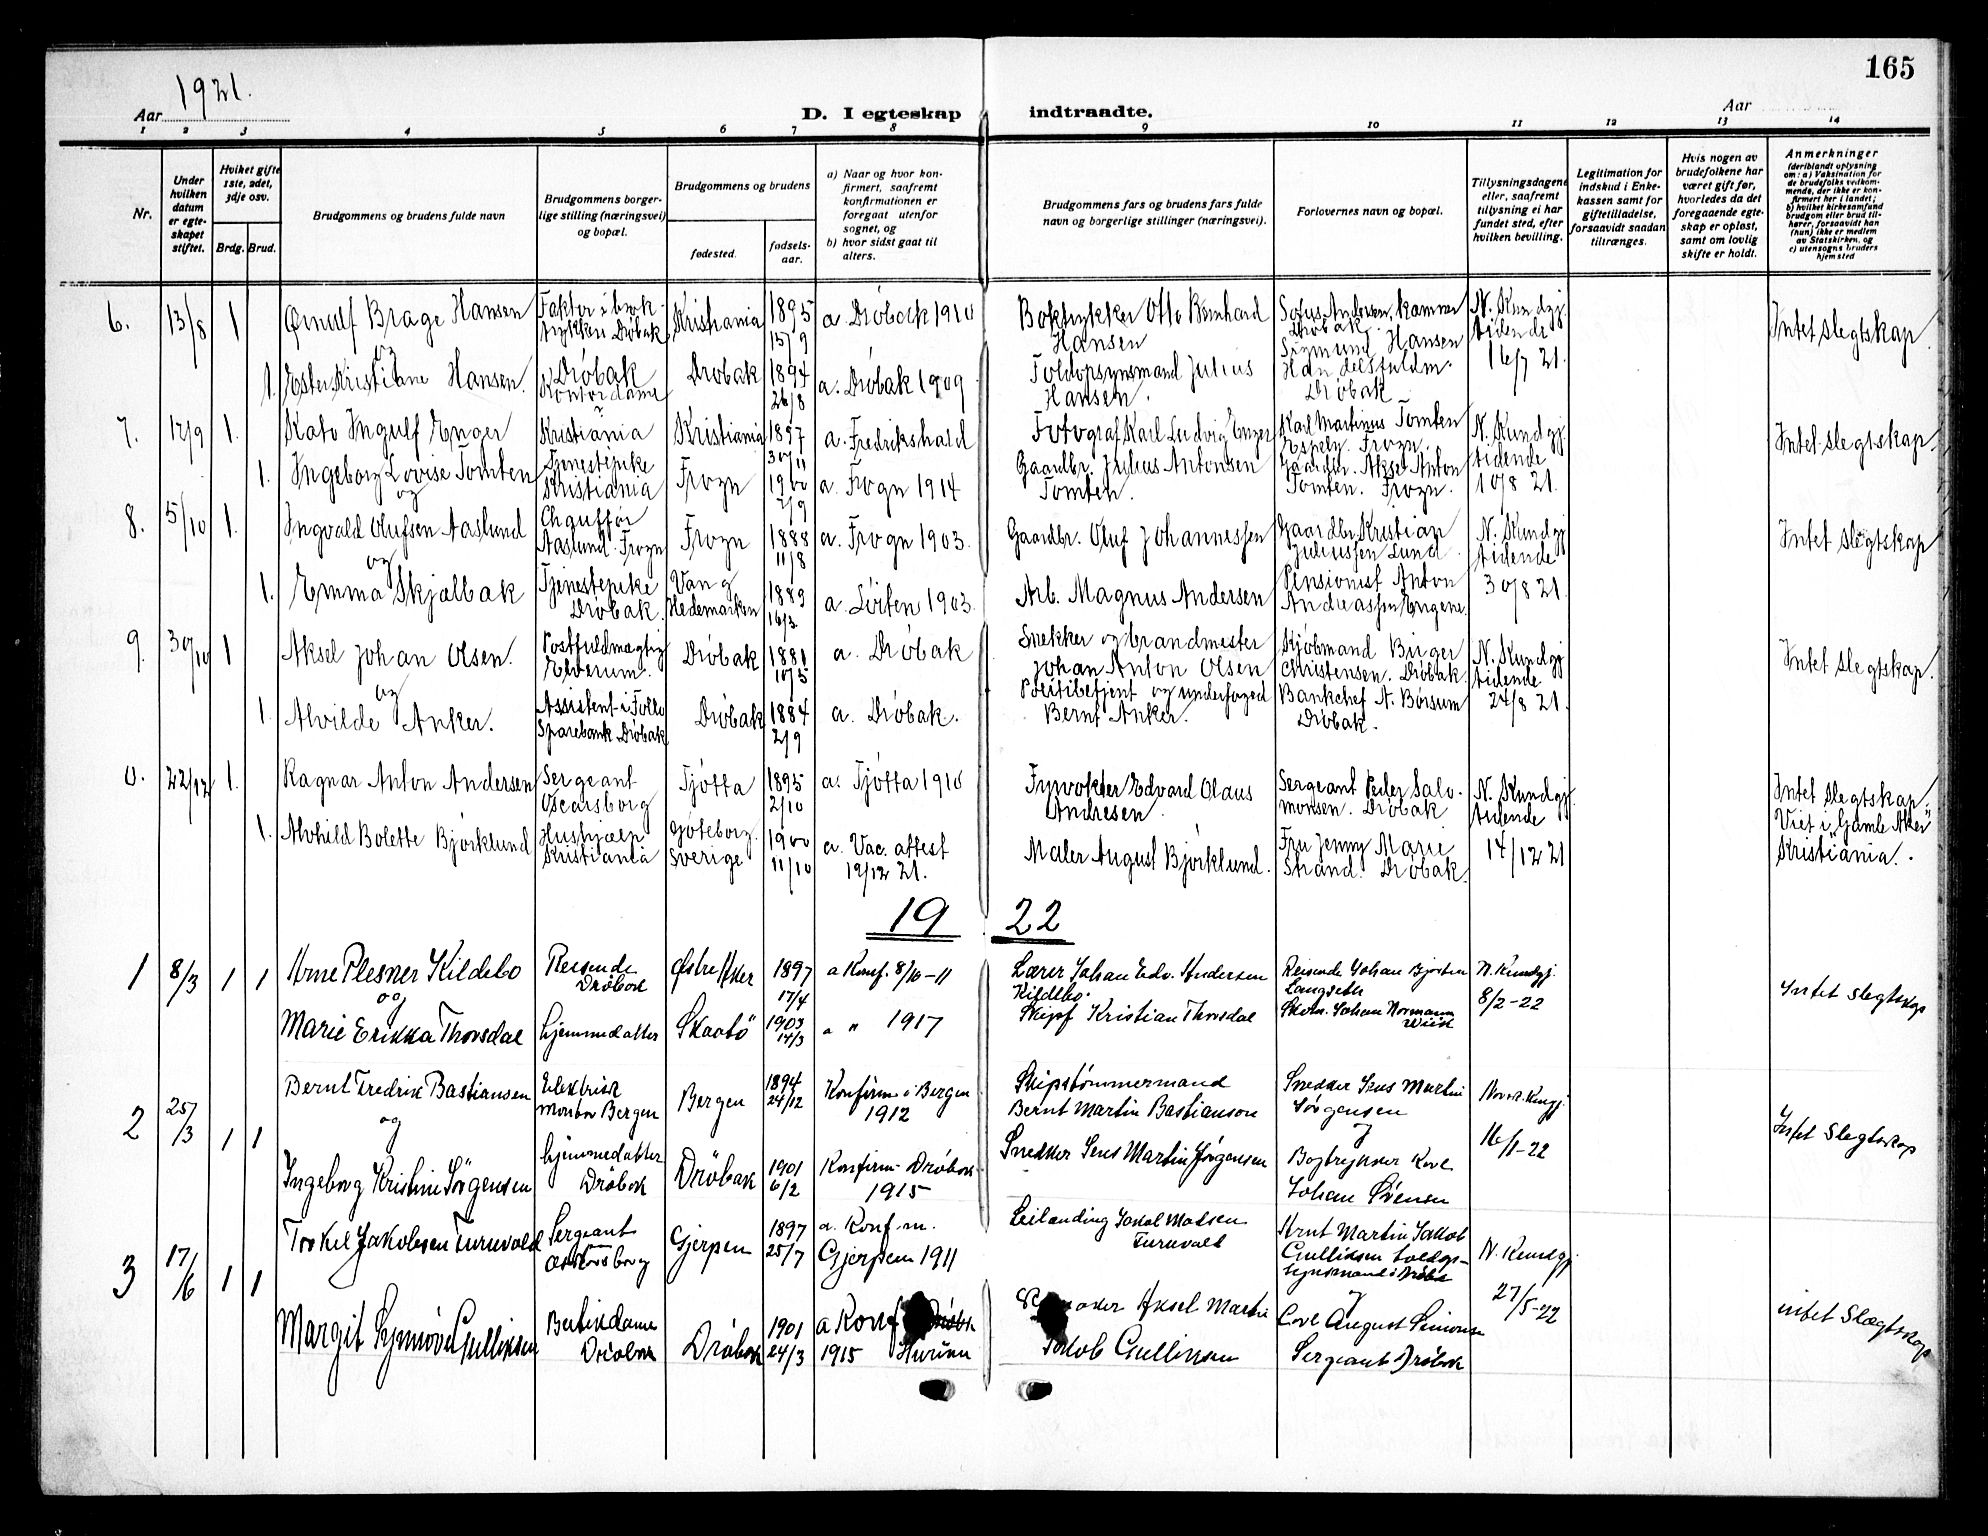 165
Aar 1921.
D. I egteskap indtraadte.
Aar
1 2 3 4 5 6 7 8 9 10 11 12 13 14
Nr.
Under hvilken datum er egteskapet stiftet.
Hvilket gifte 1ste, 2det, 3dje osv.
Brdg. Brud.
Brudgommens og brudens fulde navn
Brudgommens borgerlige stilling (næringsvei) og bopæl.
Brudgommens og brudens
fødested.
fødselsaar.
a) Naar og hvor konfirmert, saafremt konfirmationen er foregaat utenfor sognet, og
b) hvor sidst gaat til alters.
Brudgommens fars og brudens fars fulde navn og borgerlige stillinger (næringsvei).
Forlovernes navn og bopæl.
Tillysningsdagene eller, saafremt tillysning ei har fundet sted, efter hvilken bevilling.
Legitimation for indskud i Enkekassen samt for giftetilladelse, forsaavidt saadan tiltrænges.
Hvis nogen av brudefolkene har været gift før, hvorledes da det foregaaende egteskap er opløst, samt om lovlig skifte er holdt.
Anmerkninger
(deriblandt oplysning om: a) Vaksination for de brudefolks vedkommende, der ikke er konfirmert her i landet; b) hvilket kirkesamfund brudgom eller brud tilhører, forsaavidt han (hun) ikke er medlem av Statskirken, og c) utensogns bruders hjemsted
6. 13/8 1 Ørnulf Brage Hansen Faktor i boktrykkeri Drøbak Kristiania 1895 15/9 a. Drøbak 1910 Boktrykker Otto Bernhard Hansen Sofus Andersen, kamner Drøbak. N. Kundgj. tidende 16/7 21. Intet slegtskap
og
1. Ester Kristiane Hansen. Drøbak Kontordame Drøbak 1894 26/8 a. Drøbak 1909 Toldopsynsmand Julius Hansen. Sigmund Hansen Handelsfuldm. Drøbak
7. 12/9 1. Kato Ingulf Enger Kristiania Kristiania 1897 30/11 a. Fredrikshald Fotograf Karl Ludvig Enger Karl Martinus Tomten Espely. Frogn. N. Kundgj. tidende 10/8 21. Intet slegtskap.
1. Ingeborg Lovise Tomten Tjenestepike Kristiania Frogn 1900 2/9 a. Frogn 1914 Gaardbr. Julius Antonsen Tomten. Gaardbr. Aksel Anton Tomten. Frogn.
8. 5/10 1. Ingvald Olufsen Aaslund Chauffør Aaslund. Frogn Frogn 1888 11/8 a. Frogn 1903. Gaardbr. Oluf Johannessen Gaardbr. Kristian Juliussen Lund. N. Kundgj. tidende 30/8 21. Intet slegtskap
og
1. Emma Skjælbak Tjenestepike Drøbak. Vang Hedemarken 1889 16/3. a. Løiten 1903. Arb. Magnus Andersen Pensionist Anton Andreassen Engene.
9. 30/10 1 Aksel Johan Olsen. Postfuldmægtig Elverum. Drøbak 1881 10/5 a. Drøbak Snekker og brandmester Johan Anton Olsen Kjøbmand Birger Christensen. Drøbak. N. Kundgj. tidende 24/8 21. Intet slegtskap.
og
1. Alvilde Anker. Assistent i Follo Sparebank Drøbak Drøbak 1884 2/9 a. Drøbak. Politibetjent og underfoged Bernt Anker. Bankchef N. Børsum Drøbak.
0. 22/12 1. Ragnar Anton Andersen Sergeant Oscarsborg Tjøtta 1895 2/10 a. Tjøtta 1910 Fyrvokter Edvard Olaus Andresen. Sergeant Peder Salomonsen. Drøbak N. Kundgj. tidende 14/12 21 Intet slegtskap. Viet i "Gamle Aker" Kristiania.
1. Alvhild Bolette Bjørklund Hushjælp Kristiania Gøteborg. Sverige 1900 11/10 a. Vac. attest 19/12 21. Maler August Bjørklund. Fru Jenny Marie Strand. Drøbak.
1922
1 8/3 1 1 Arne Plesner Kildebo Reisende Drøbak Østre Aker 1897 17/4 a Konf. 8/10-11 Lærer Johan Edv. Andersen Kildebo. Reisende Johan Bjørten Langseth N. Kundgj. 8/2-22 Intet slegtskap
og
Marie Erikka Thorsdal hjemmedatter Skaatø 1903 14/3 a " 1917 Skipf Kristian Thorsdal Johan Normann
2 25/3 1 1 Bernt Fredrik Bastiansen Elektrisk montør Bergen Bergen 1894 24/12 Konfirm i Bergen 1912 Skipstømmermand Bernt Martin Bastianson Snekker Jens Martin Jørgensen 16/1-22 Intet Slegtskap
og
Ingeborg Kristine Jørgensen hjemmedatter Drøbak Drøbak 1901 6/2 Konfirm. Drøbak 1915 Snekker Jens Martin Jørgensen Bogtrykker Karl Johan
3 17/6 1 1 Torkel Jakobsen Furuvald Sergeant Oscarsborg Gjerpen 1897 25/7 a. Konf. Gjerpen 1911 Leilending Jakob Madsen Furuvald Arnt Martin Jakob Gulliksen N. Kundgj 27/5-22 intet Slegtskap
Margit Synnøve Gulliksen Butikdame Drøbak Drøbak 1901 24/3 a Konf 1915 Hurum Aksel Martin Jakob Gulliksen Carl August Simonsen Sergeant Drøbak